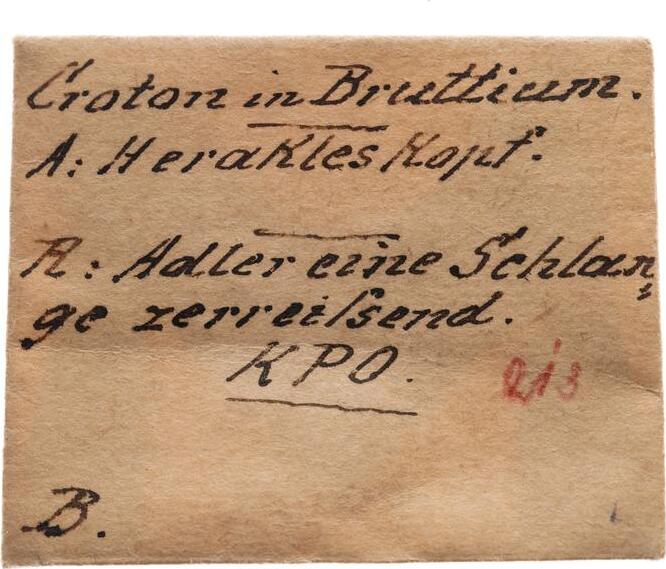 Croton in Bruttium.
A: Herakles Kopf.
R: Adler eine Schlan⸗
ge zerreiſsend.
KPO.
B.